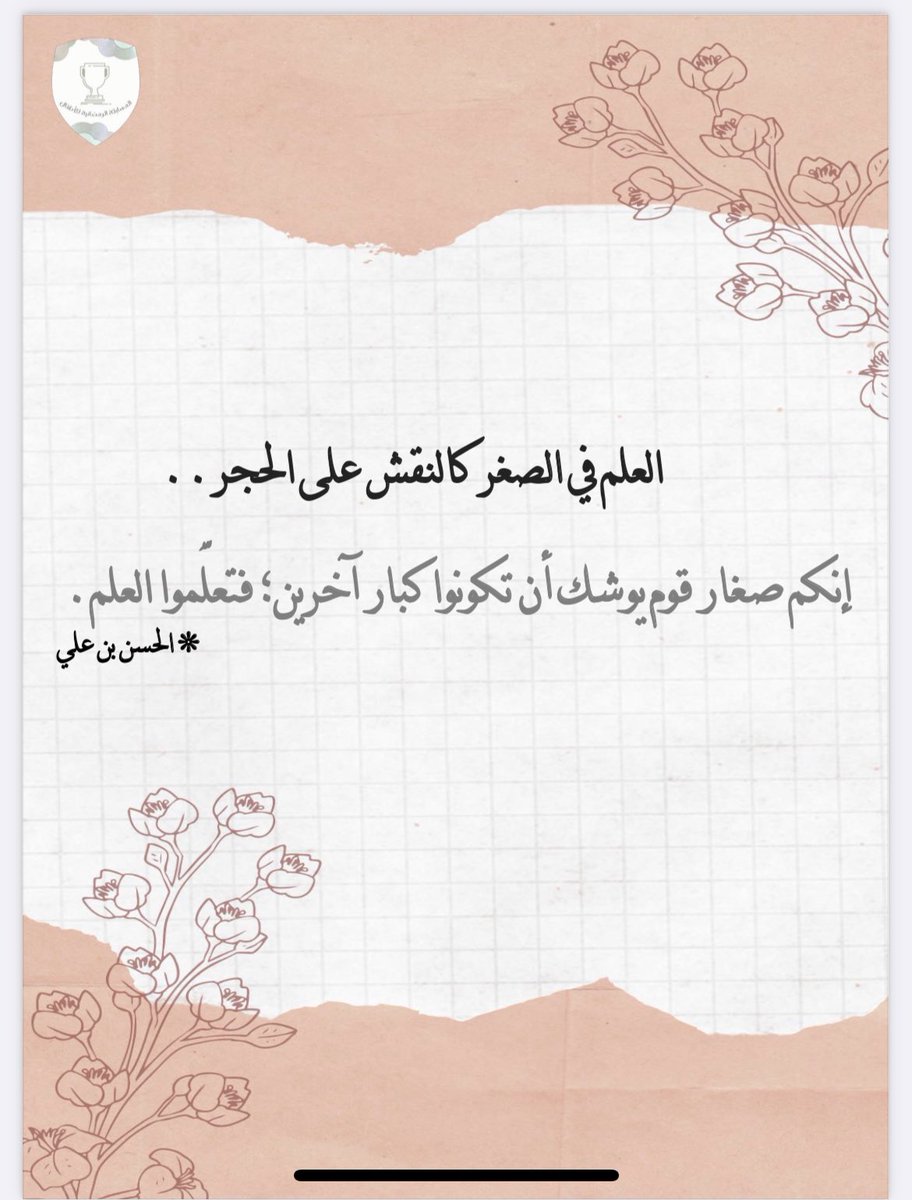 المسابقة الرمضانية للأطفال
العلم في الصغر كالنقش على الحجر . .
إنكم صغار قوم يوشك أن تكونوا كبار آخرين؛ فتعلّموا العلم .
❋ الحسن بن علي